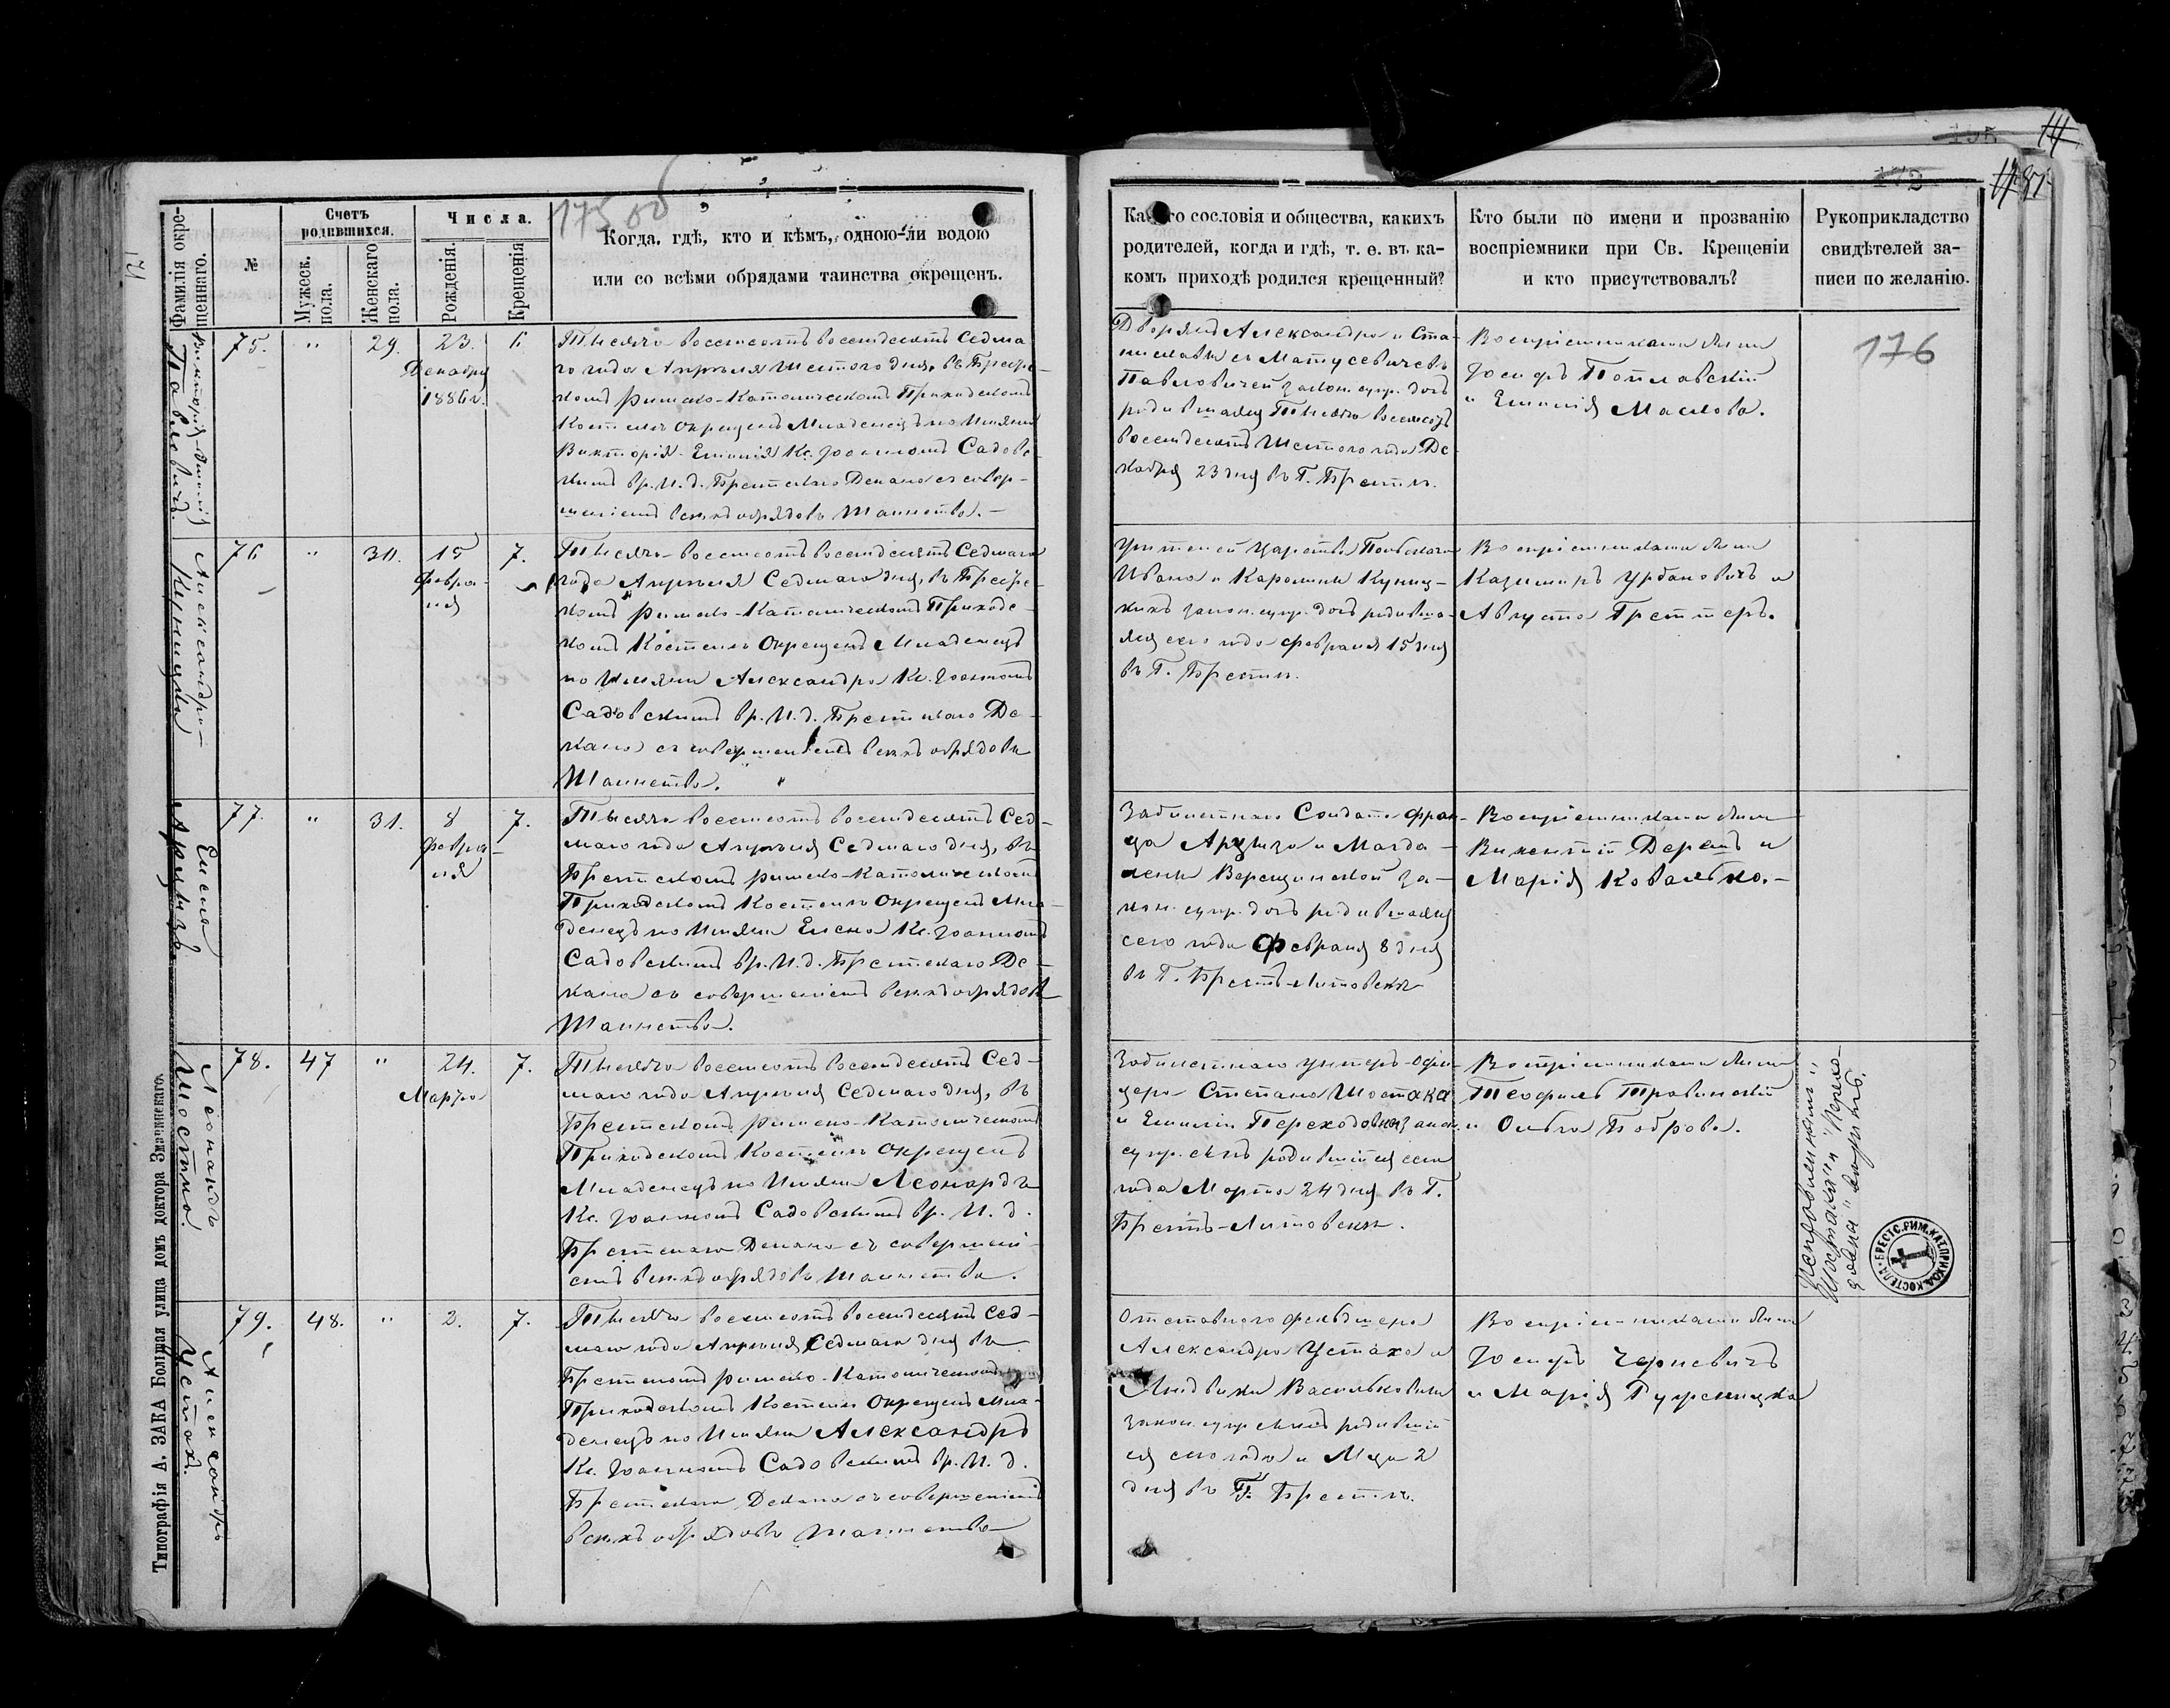 17500
Фамилія окре-
щеннаго.
№
Счетъ
родившихся.
Мужеск.
пола.
Женскаго
пола.
Числа.
Рожденія.
Крещенія
Когда, гдѣ, кто и кѣмъ, одною-ли водою
или со всѣми обрядами таинства окрещенъ.
Викторія-Эмилія
Павловичъ.
75.
"
29.
23.
Декабря
1886 г.
6
Тысяча восемсотъ восемдесятъ Седма
го года Апрѣля Шестого дня, въ Брест-
комъ Римско-Католическомъ Приходскомъ
Костелѣ Окрещенъ Младенецъ по Имяни
Викторія-Емилія Кс. Іоанномъ Садовс-
кимъ вр. И. д. Брестскаго Декана съ совер-
шеніемъ всѣхъ обрядовъ Таинства.-
Александра
Куницка
76
"
30.
15
Февра-
ля
7.
Тысяча-восемсотъ восемдесятъ Седмаго
года Апрѣля Седмаго дня, въ Брест-
комъ Римско-Католическомъ Приходс-
комъ Костелѣ Окрещенъ Младенецъ
по Имяни Александра Кс. Іоанномъ
Садовскимъ вр. И. д. Брестскаго Де-
кана съ совершеніемъ всѣхъ обрядовъ
Таинства.
Елена
77.
"
31.
8
Февра-
ля
7.
Тысяча восемсотъ восемдесятъ Сед-
маго года Апрѣля Седмаго дня, въ
Брестскомъ Римско-Католическомъ
Приходскомъ Костелѣ Окрещенъ Мла-
денецъ по Имяни Елена Кс. Іоанномъ
Садовскимъ вр. И. д. Брестскаго Де-
кана съ совершеніемъ всѣхъ обрядовъ
Таинства.
Леонардъ
78.
47
"
24.
Марта
7.
Тысяча восемсотъ восемдесятъ Сед-
маго года Апрѣля Седмаго дня, въ
Брестскомъ Римско-Католическомъ
Приходскомъ Костелѣ Окрещенъ
Младенецъ по Имяни Леонардъ
Кс. Іоанномъ Садовскимъ вр. И. д.
Брестскаго Декана съ совершені-
емъ всѣхъ обрядовъ Таинства.
Александръ
Устахъ.
79.
48.
"
2.
7.
Тысяча восемсотъ восемдесятъ Сед-
маго года Апрѣля Седмаго дня въ
Брестскомъ Римско-Католическомъ
Приходскомъ Костелѣ Окрещенъ Мла-
денецъ по Имяни Александръ
Кс. Іоанномъ Садовскимъ вр. И. д.
Брестскаго Декана съ совершеніемъ
всѣхъ обрядовъ Таинства
Типографія А. ЗАКА Большая улица домъ доктора Змачинскаго.
Какого сословія и общества, какихъ
родителей, когда и гдѣ, т. е. въ ка-
комъ приходѣ родился крещенный?
Кто были по имени и прозванію
воспріемники при Св. Крещеніи
и кто присутствовалъ?
Рукоприкладство
свидѣтелей за-
писи по желанію.
Дворянъ Александра и Ста-
ниславы съ Матусевичевъ
Павловичей закон. супр. дочь
родившаяся Тысяча восемсотъ
восемдесятъ Шестого года Де-
кабря 23 дня въ Г. Брестѣ.
Воспріемниками были
Іосифъ Поплавскій
и Емилія Маслова.
176
Ивана и Каролины Куниц-
кихъ закон. супр. дочь родивша-
яся сего года Февраля 15 дня
въ Г. Брестѣ.
Воспріемниками были
Казимиръ Урбановичъ и
Августа
Солдата Фран-
ца и Магда-
лены Верещинской за-
кон. супр. дочь родившаяся
сего года Февраля 8 дня
въ Г. Брестъ-Литовскѣ
Воспріемниками были
Викентій и
Марія Ковалько.-
Унтеръ-офи-
цера Степана Шостака
и Емиліи Переходовой закон.
супр. сынъ родившійся сего
года Марта 24 дня въ Г.
Брестъ-Литовскѣ.
Воспріемниками были
Теофиль Травинскій
и Ольга Боброва.
БРЕСТС. РИМ. КАТ. ПРИХОД. КОСТЕЛА
Отставного фельдшера
Александра Устаха и
Людвики Васильковой
закон. супр. сынъ родившій
ся сего года и М-ца 2
дня въ Г. Брестѣ.
Воспріемниками были
Іосифъ Черневичъ
и Марія